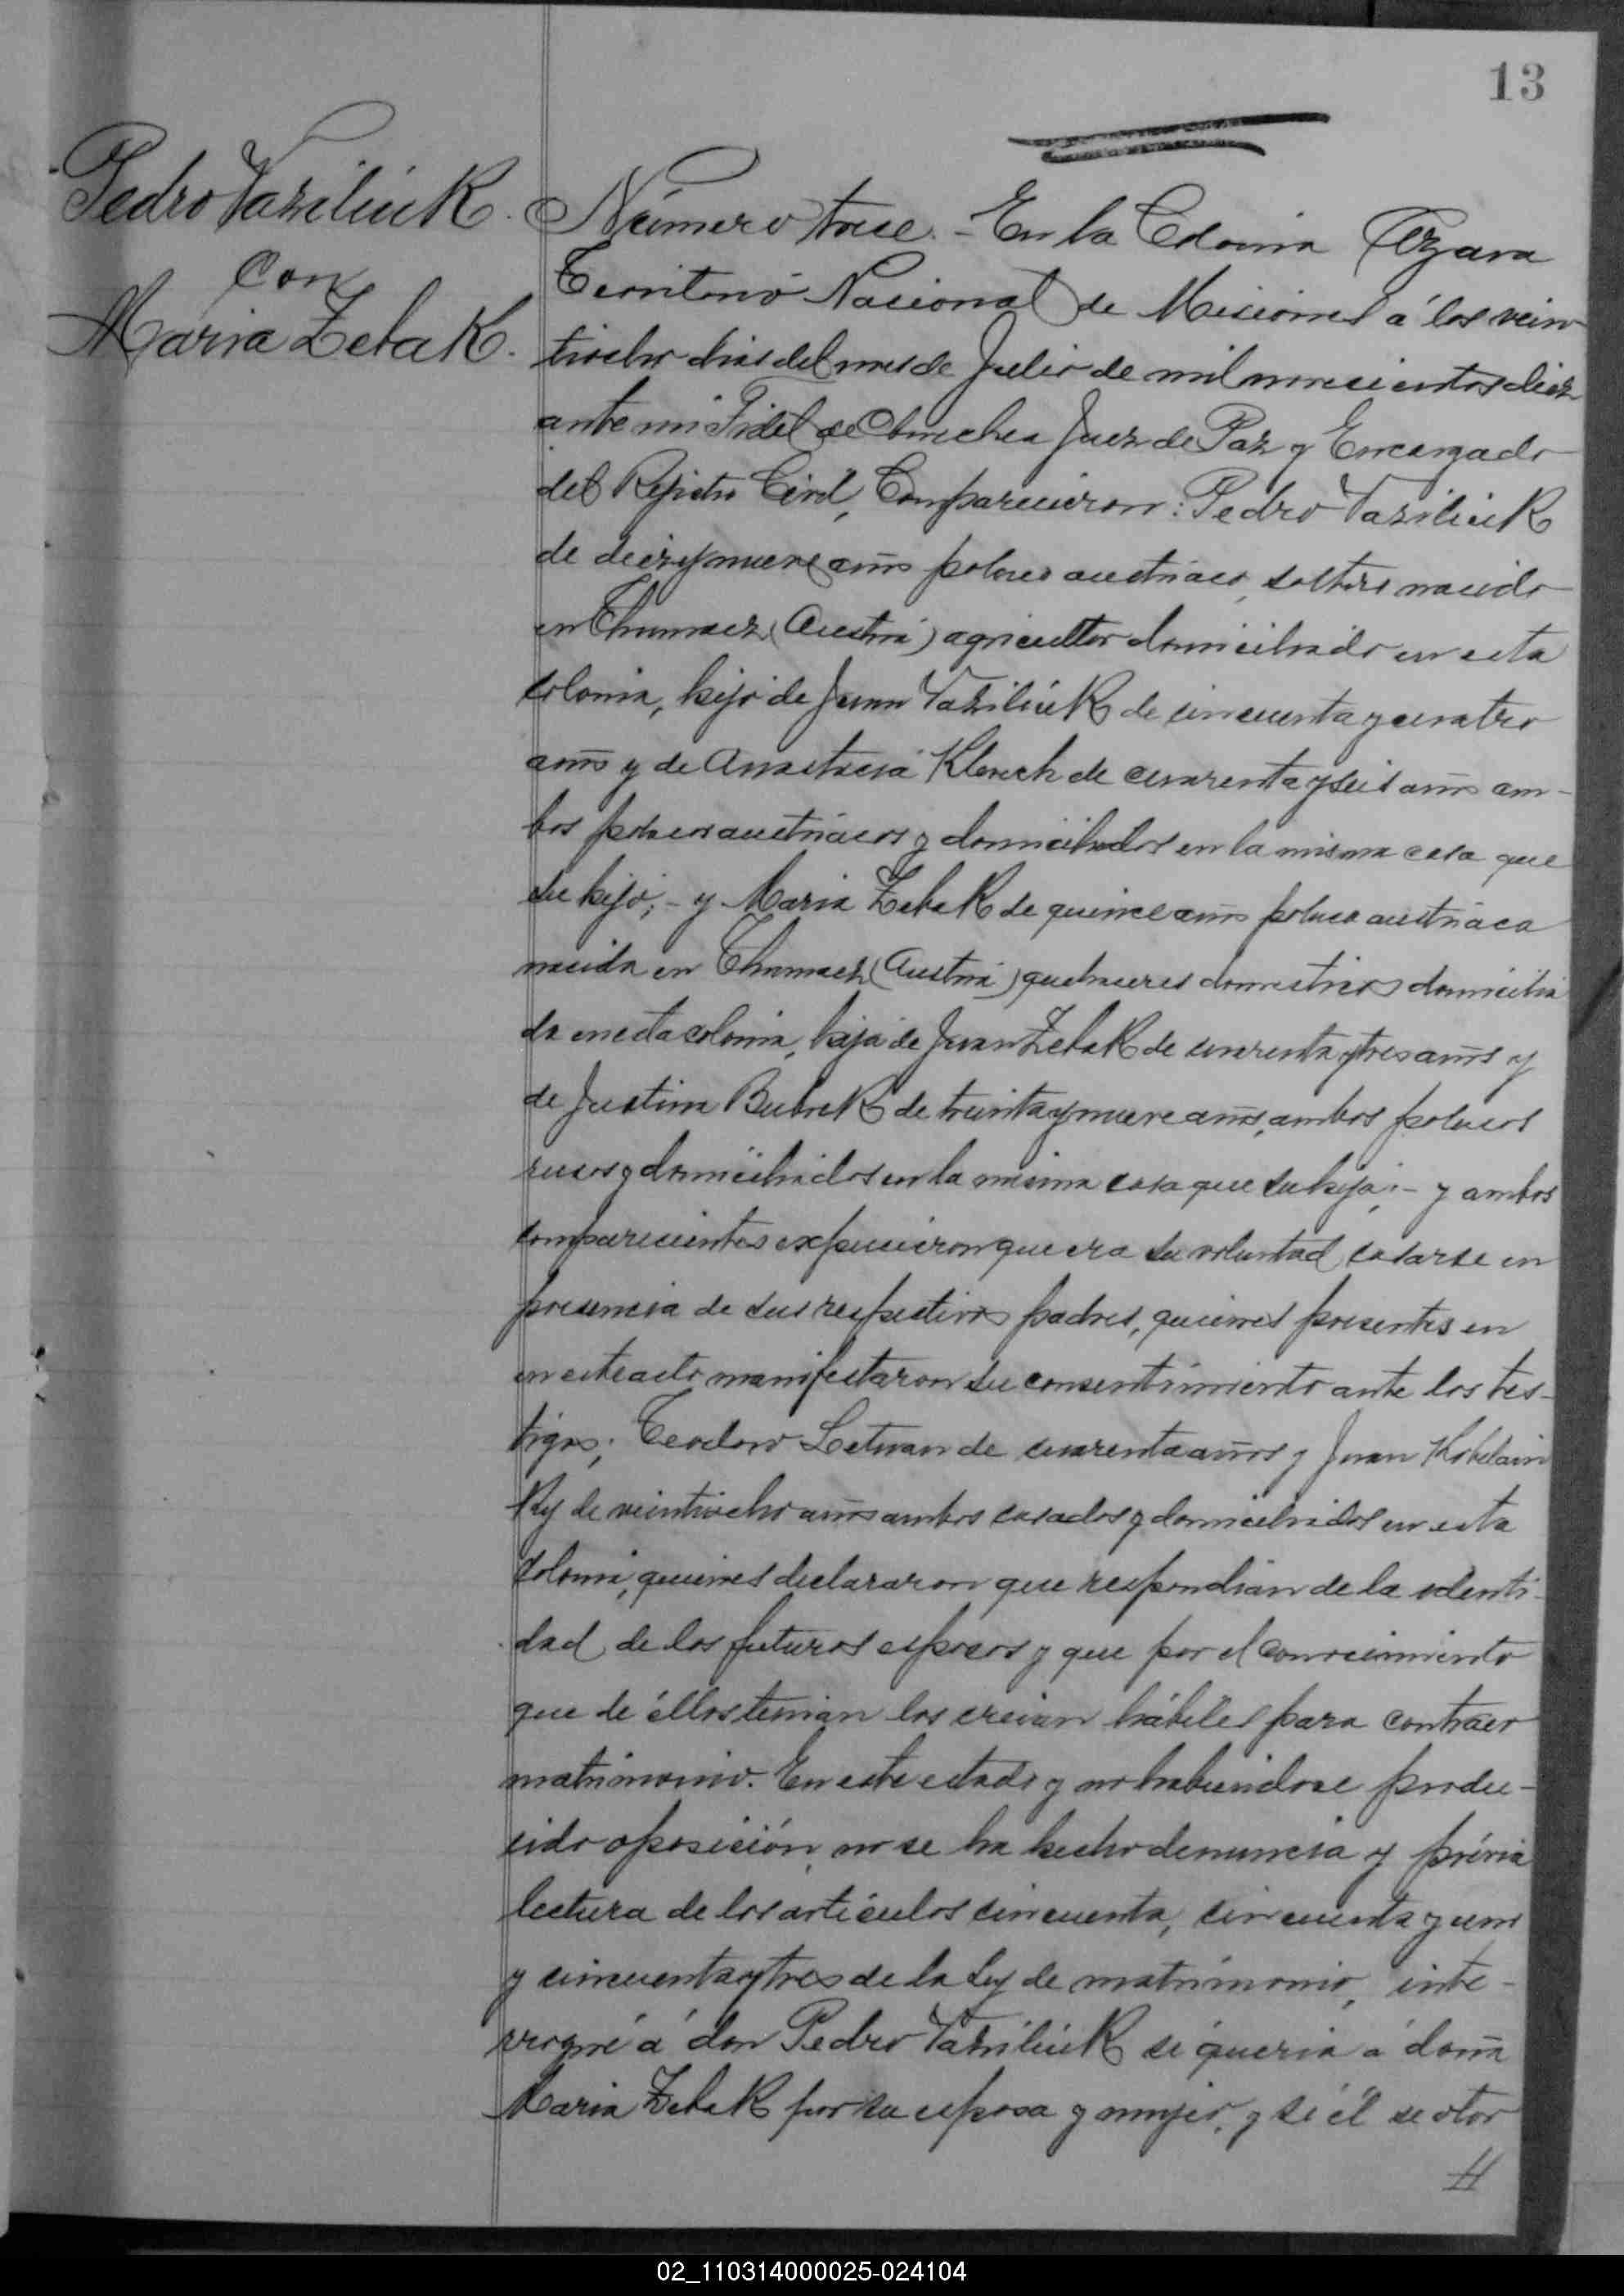 13
Pedro Vasiliuk
con
Maria Zebak.
Número trece. - En la Colonia Azara
Territorio Nacional de Misiones á los vein
tiocho dias del mes de Julio de mil novecientos diez
ante mi Fidel de Juez de Paz y Encargado
del Rejistro Civil, Comparecieron: Pedro Vasiliuk
de diezynueve años polaco austriaco, soltero nacido
en (Austria) agricultor domiciliado en esta
colonia, hijo de Juan Vasiliuk de cincuenta y cuatro
años y de Anastacia de cuarenta y seis años am-
bos polacos austriacos y domiciliados en la misma casa que
su hijo; - y Maria Zebak de quince años polaca austriaca
nacida en (Austria) quehaceres domesticos domicilia
da en esta colonia, hija de Juan Zebak de cuarenta y tres años y
de Justina de treinta y nueve años, ambos polacos
rusos y domiciliados en la misma casa que su hija; - y ambos
comparecientes expusieron que era su voluntad casarse en
presencia de sus respectivos padres, quienes presentes en
en este acto manifestaron su consentimiento ante los tes-
tigos; Teodoro Letwan de cuarenta años y Juan
ky de veintiocho años ambos casados y domiciliados en esta
colonia, quienes declararon que respondian de la identi-
dad de los futuros esposos y que por el conocimiento
que de éllos tenian los creian hábiles para contraer
matrimonio. En este estado y no habiendose produ-
cido oposición, no se ha hecho denuncia y prévia
lectura de los articulos cincuenta, cincuenta y uno
y cincuenta y tres de la Ley de matrimonio, inte-
rrogué á don Pedro Vasiliuk si queria á doña
Maria Zebak por su esposa y mujer, y si él se otor
//
02_110314000025-024104